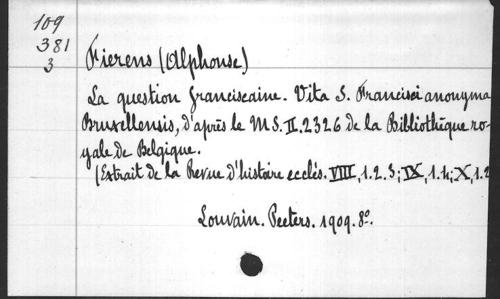 109
381
3
Fierens (Alphonse)
La question franciscaine. Vita S. Francisci anonyma
Bruxellensis, d'après le MS. II. 2326 de la Bibliothèque ro-
yale de Belgique.
(Extrait de la Revue d'histoire ecclés. VIII, 1. 2. 3; IX, 1. 4; X, 1. 2
Louvain. Peeters. 1909. 8º.